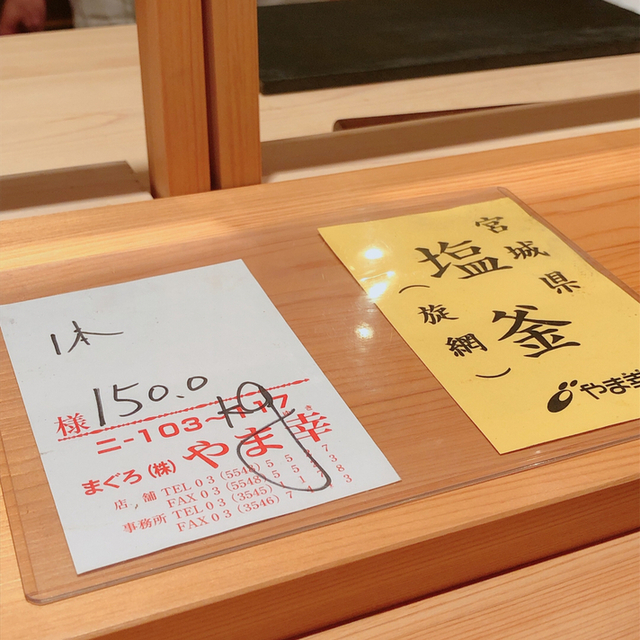 1本
150.0
様
ニ-103~117
まぐろ(株)やま幸
店舗 TEL 03(5548)
FAX 03(5548)
事務所 TEL 03(3545)
FAX 03(3546)
宮城県
塩釜
(旋網)
やま幸